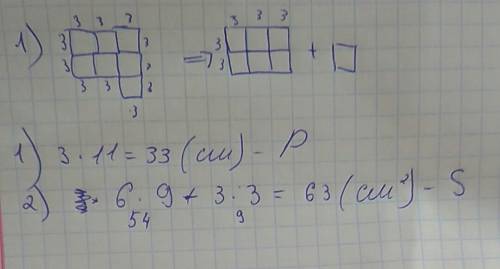 1)
3 3 3
3 3
3 3
3 3 3
3
=> 
3 3 3
3
3
+
1) 3 · 11 = 33 (см) - P
2) 6 · 9 + 3 · 3 = 63 (см²) - S
54 9